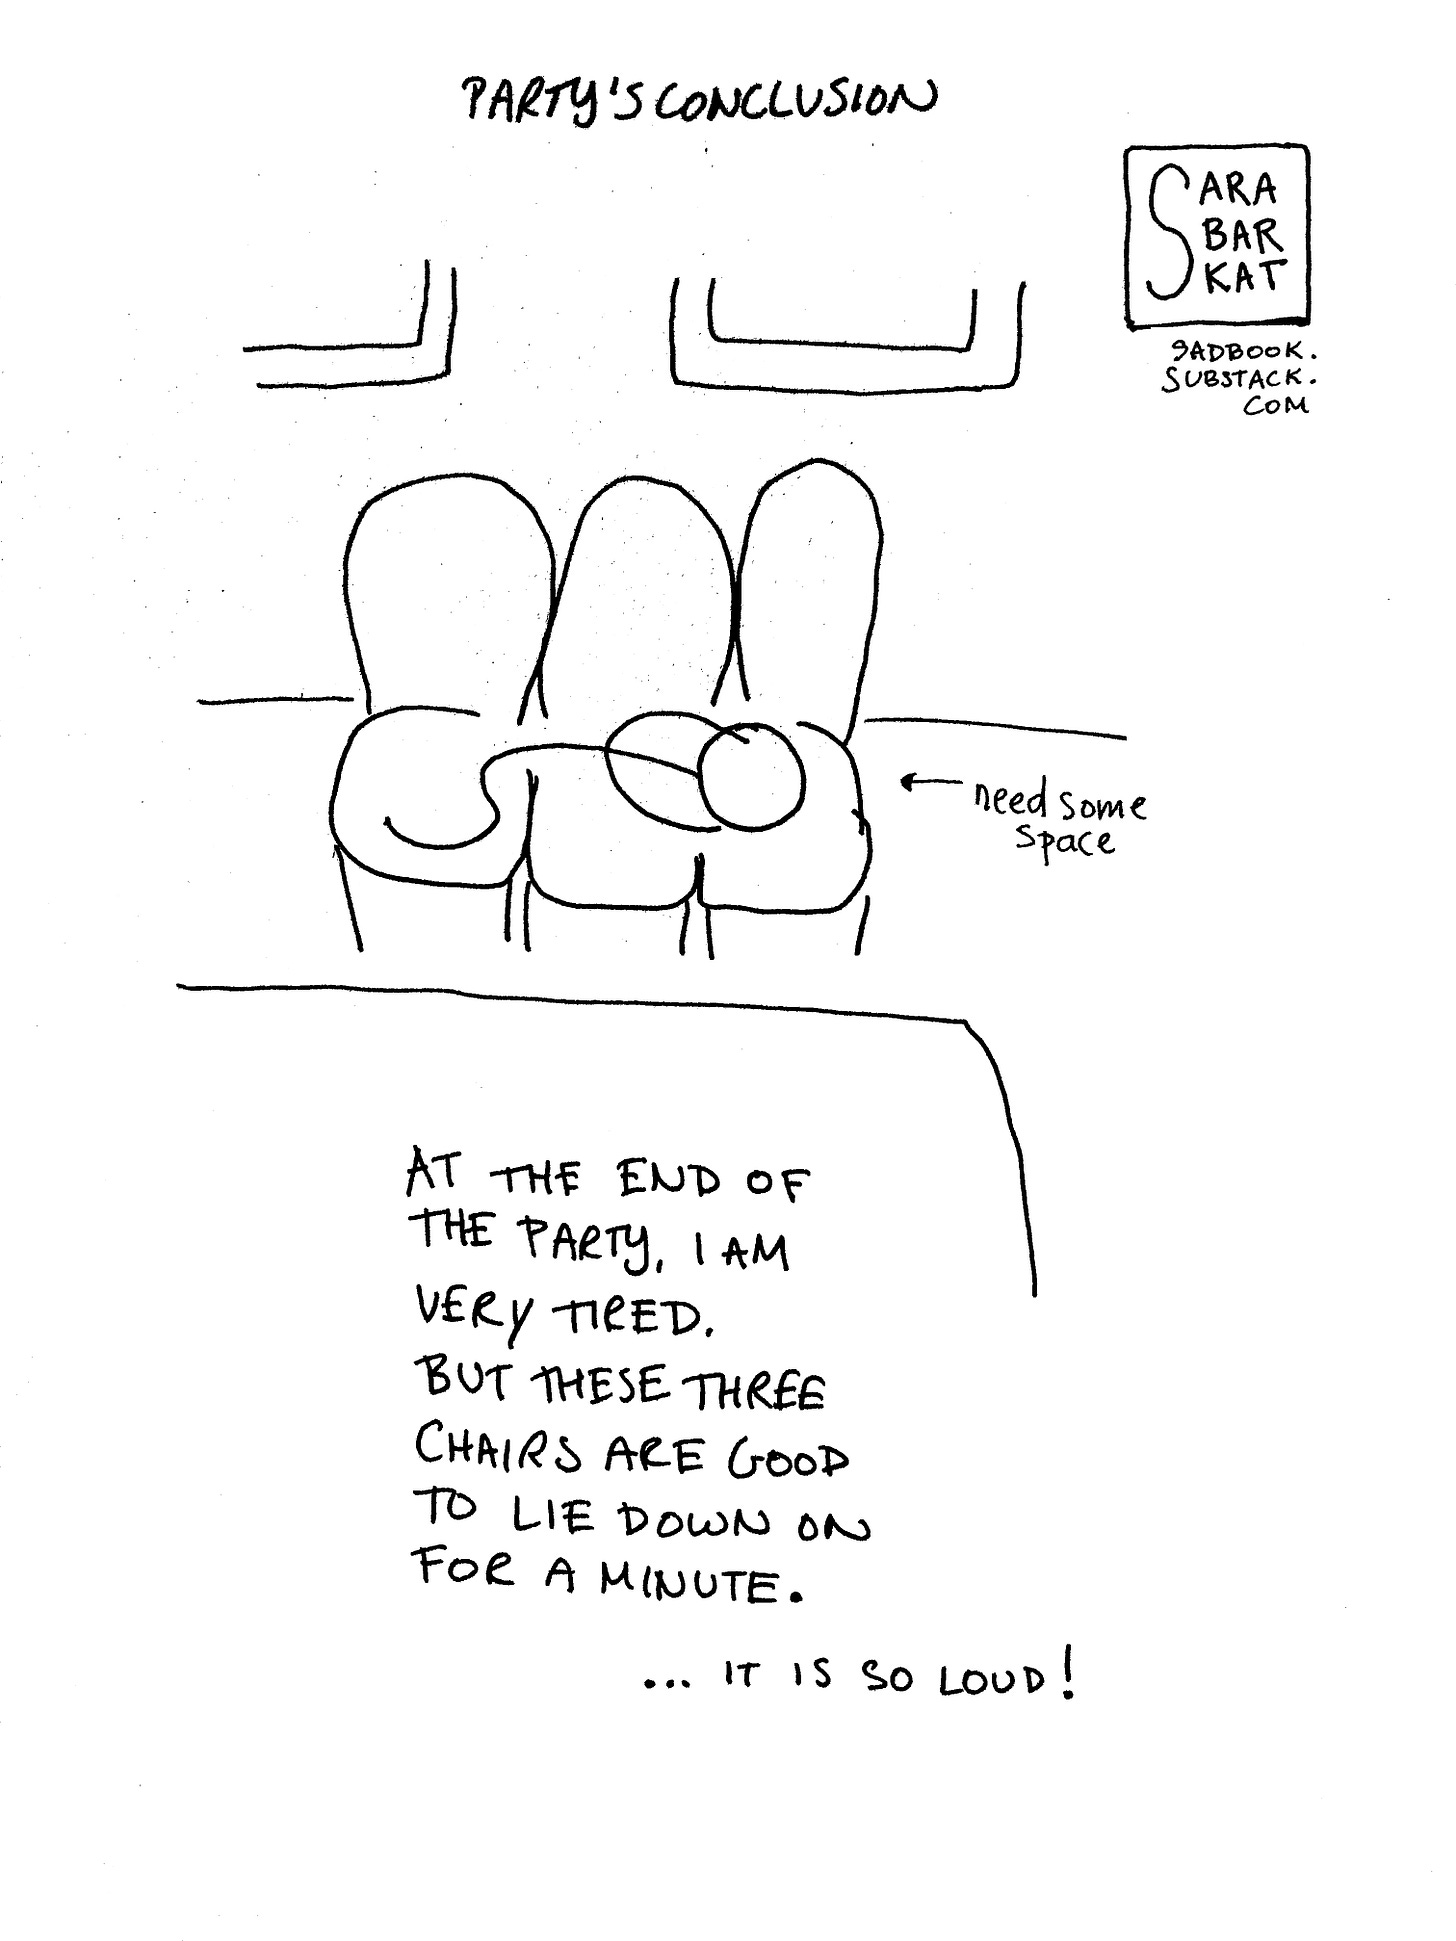 PARTY'S CONCLUSION
SARA
BAR
KAT
SADBOOK.
SUBSTACK.
COM
need some
space
AT THE END OF
THE PARTY, I AM
VERY TIRED.
BUT THESE THREE
CHAIRS ARE GOOD
TO LIE DOWN ON
FOR A MINUTE.
... IT IS SO LOUD!